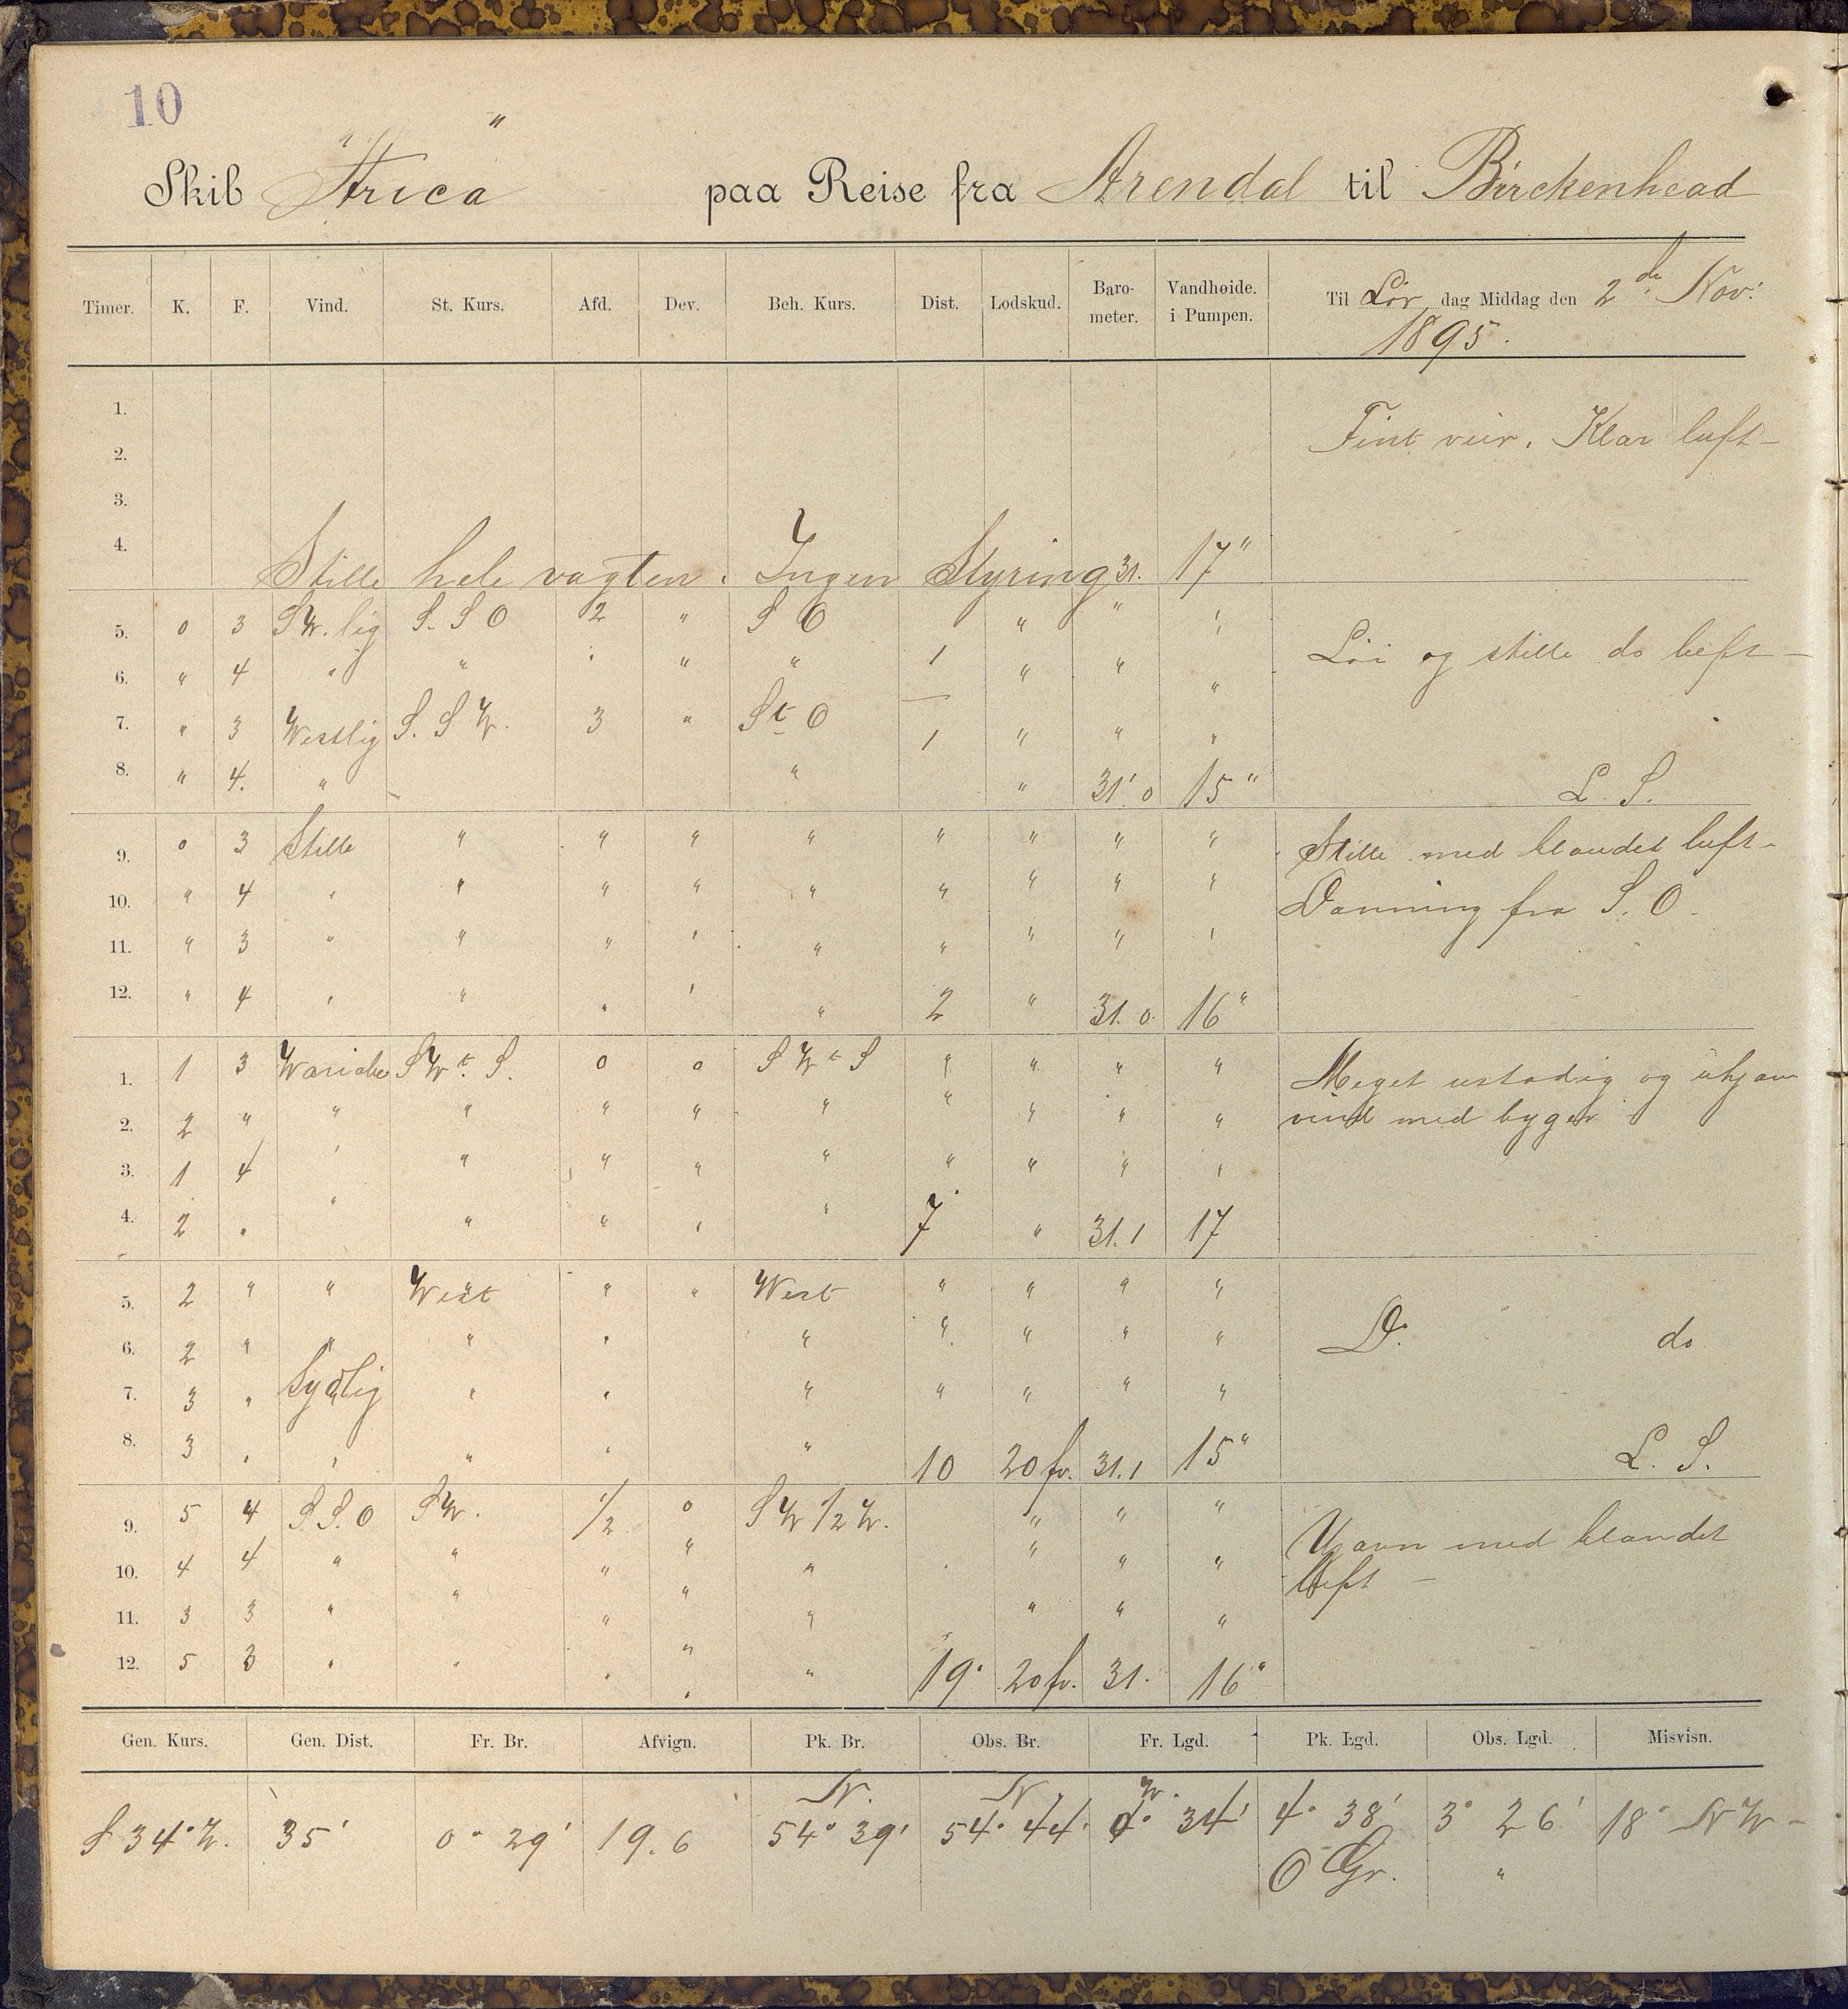 10
Skib "Arica" paa Reise fra Arendal til Birckenhead
Timer. K. F. Vind. St. Kurs. Afd. Dev. Beh. Kurs. Dist. Lodskud. Baro-meter. Vandhøide. i Pumpen. Til Lør dag Middag den 2de Nov: 1895.
1. Fint veir. Klar luft -
2.
3.
4. Stille hele vagten. Ingen Styring 31. 17"
5. 0 3 SW.lig S.SO 2 " SO " " "
6. " 4 " " " " " 1 " " " Løi og stille do luft -
7. " 3 Westlig S.SW. 3 " St O 1 " " "
8. " 4. " " " 31.0 15" L. S.
9. 0 3 Stille " " " " " " " " Stille med blandet luft -
10. " 4 " " " " " " " " " Dønning fra S. O.
11. " 3 " " " " " " " " "
12. " 4 " " " " " 2 " 31.0. 16"
1. 1 3 Wariabe SWt. S. 0 0 SWt S " " " " Meget ustadig og ujavn
2. 2 " " " " " " " " " " vind med byger
3. 1 4 " " " " " " " " "
4. 2 " " " " " " 7 " 31.1 17
5. 2 " " West " " West " " " "
6. 2 " " " " " " " " " Do do
7. 3 " Sydlig " " " " " " "
8. 3 " " " " " 10 20 fv. 31.1 15" L. S.
9. 5 4 S.S.O SW. 1/2 0 SW 1/2 W. " " " Ujavn med blandet
10. 4 4 " " " " " " " " luft -
11. 3 3 " " " " " " " "
12. 5 3 " " " " " 19" 20 fv. 31. 16"
Gen. Kurs. Gen. Dist. Fr. Br. Afvign. Pk. Br. Obs. Br. Fr. Lgd. Pk. Lgd. Obs. Lgd. Misvisn.
N. N. W.
S 34° W. 35' 0° 29' 19.6 54° 39' 54° 44' 0° 34' 4° 38' 3° 26' 18° NW -
O Gr. "